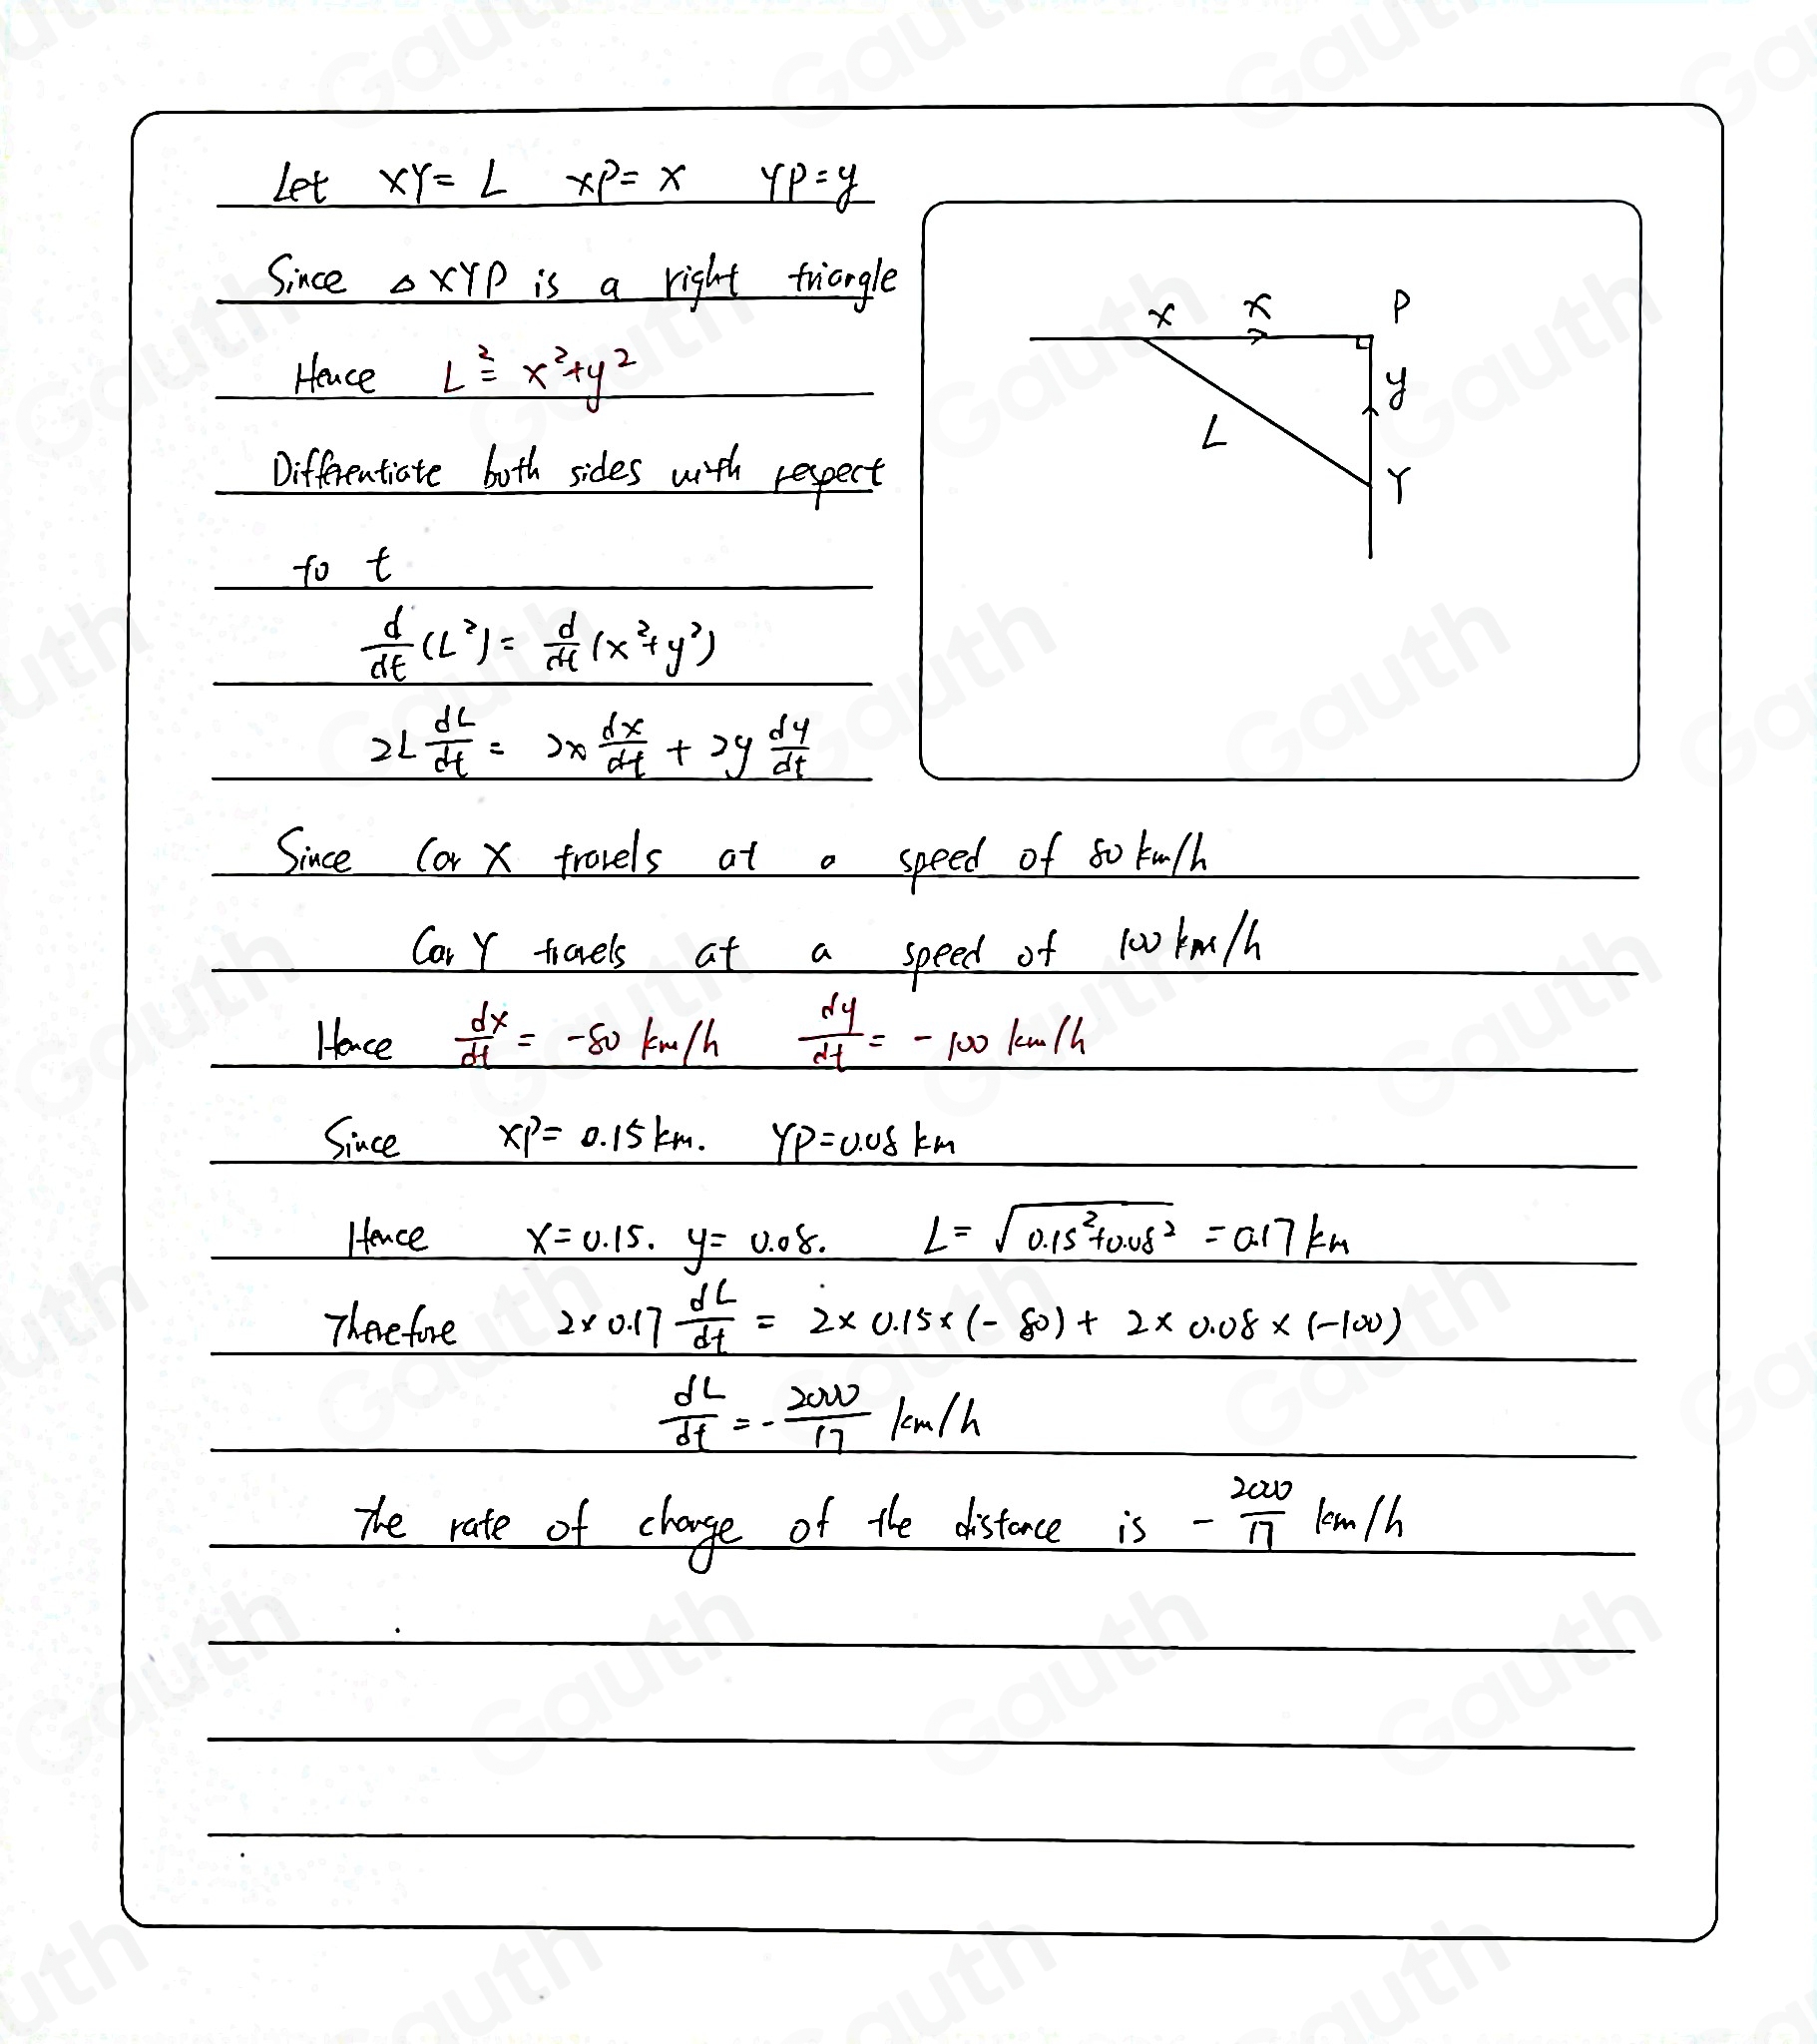 Let XY= L XP= x YP=y
Since △XYP is a right triangle
Hence L²= x²+y²
Differentiate both sides with respect
to t
d/dt (L²)= d/dt (x²+y²)
2L dL/dt = 2x dx/dt + 2y dy/dt
X x P
y
L
Y
Since Car X travels at a speed of 80 km/h
Car Y travels at a speed of 100 km/h
Hence dx/dt = -80 km/h dy/dt = -100 km/h
Since XP= 0.15 km. YP=0.08 km
Hence x=0.15. y= 0.08. L= √(0.15²+0.08²) = 0.17 km
Therefore 2×0.17 dL/dt = 2× 0.15×(- 80)+ 2× 0.08 × (-100)
dL/dt = - 2000/17 km/h
The rate of change of the distance is - 2000/17 km/h
Gauth